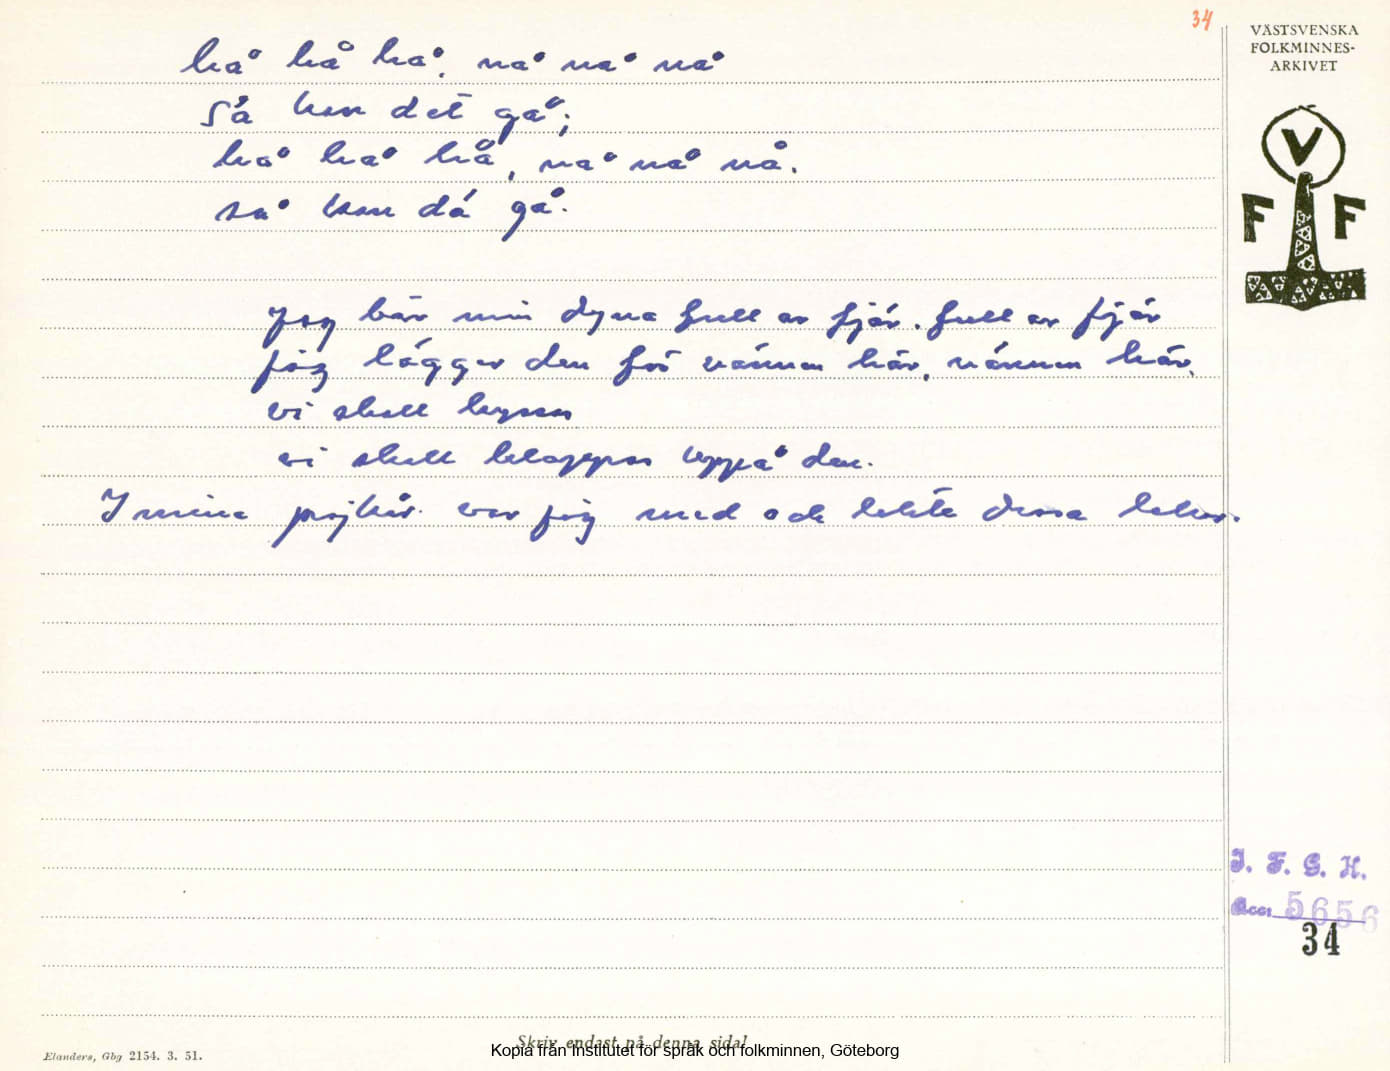 34
VÄSTSVENSKA
FOLKMINNES-
ARKIVET
V
F F
hå hå hå, nå nå nå
så kan det gå;
hå hå hå, nå nå nå.
så kan då gå.
Jag bär min dyna full av fjär. full av fjär
jag lägger den för vännen här, vännen här,
vi skall kyssas
vi skall klappas uppå den.
I mina pojkår. var jag med och lekte dessa lekar.
I. F. G. H.
Acc: 5656
34
Skriv endast på denna sida!
Kopia från Institutet för språk och folkminnen, Göteborg
Elanders, Gbg 2154. 3. 51.